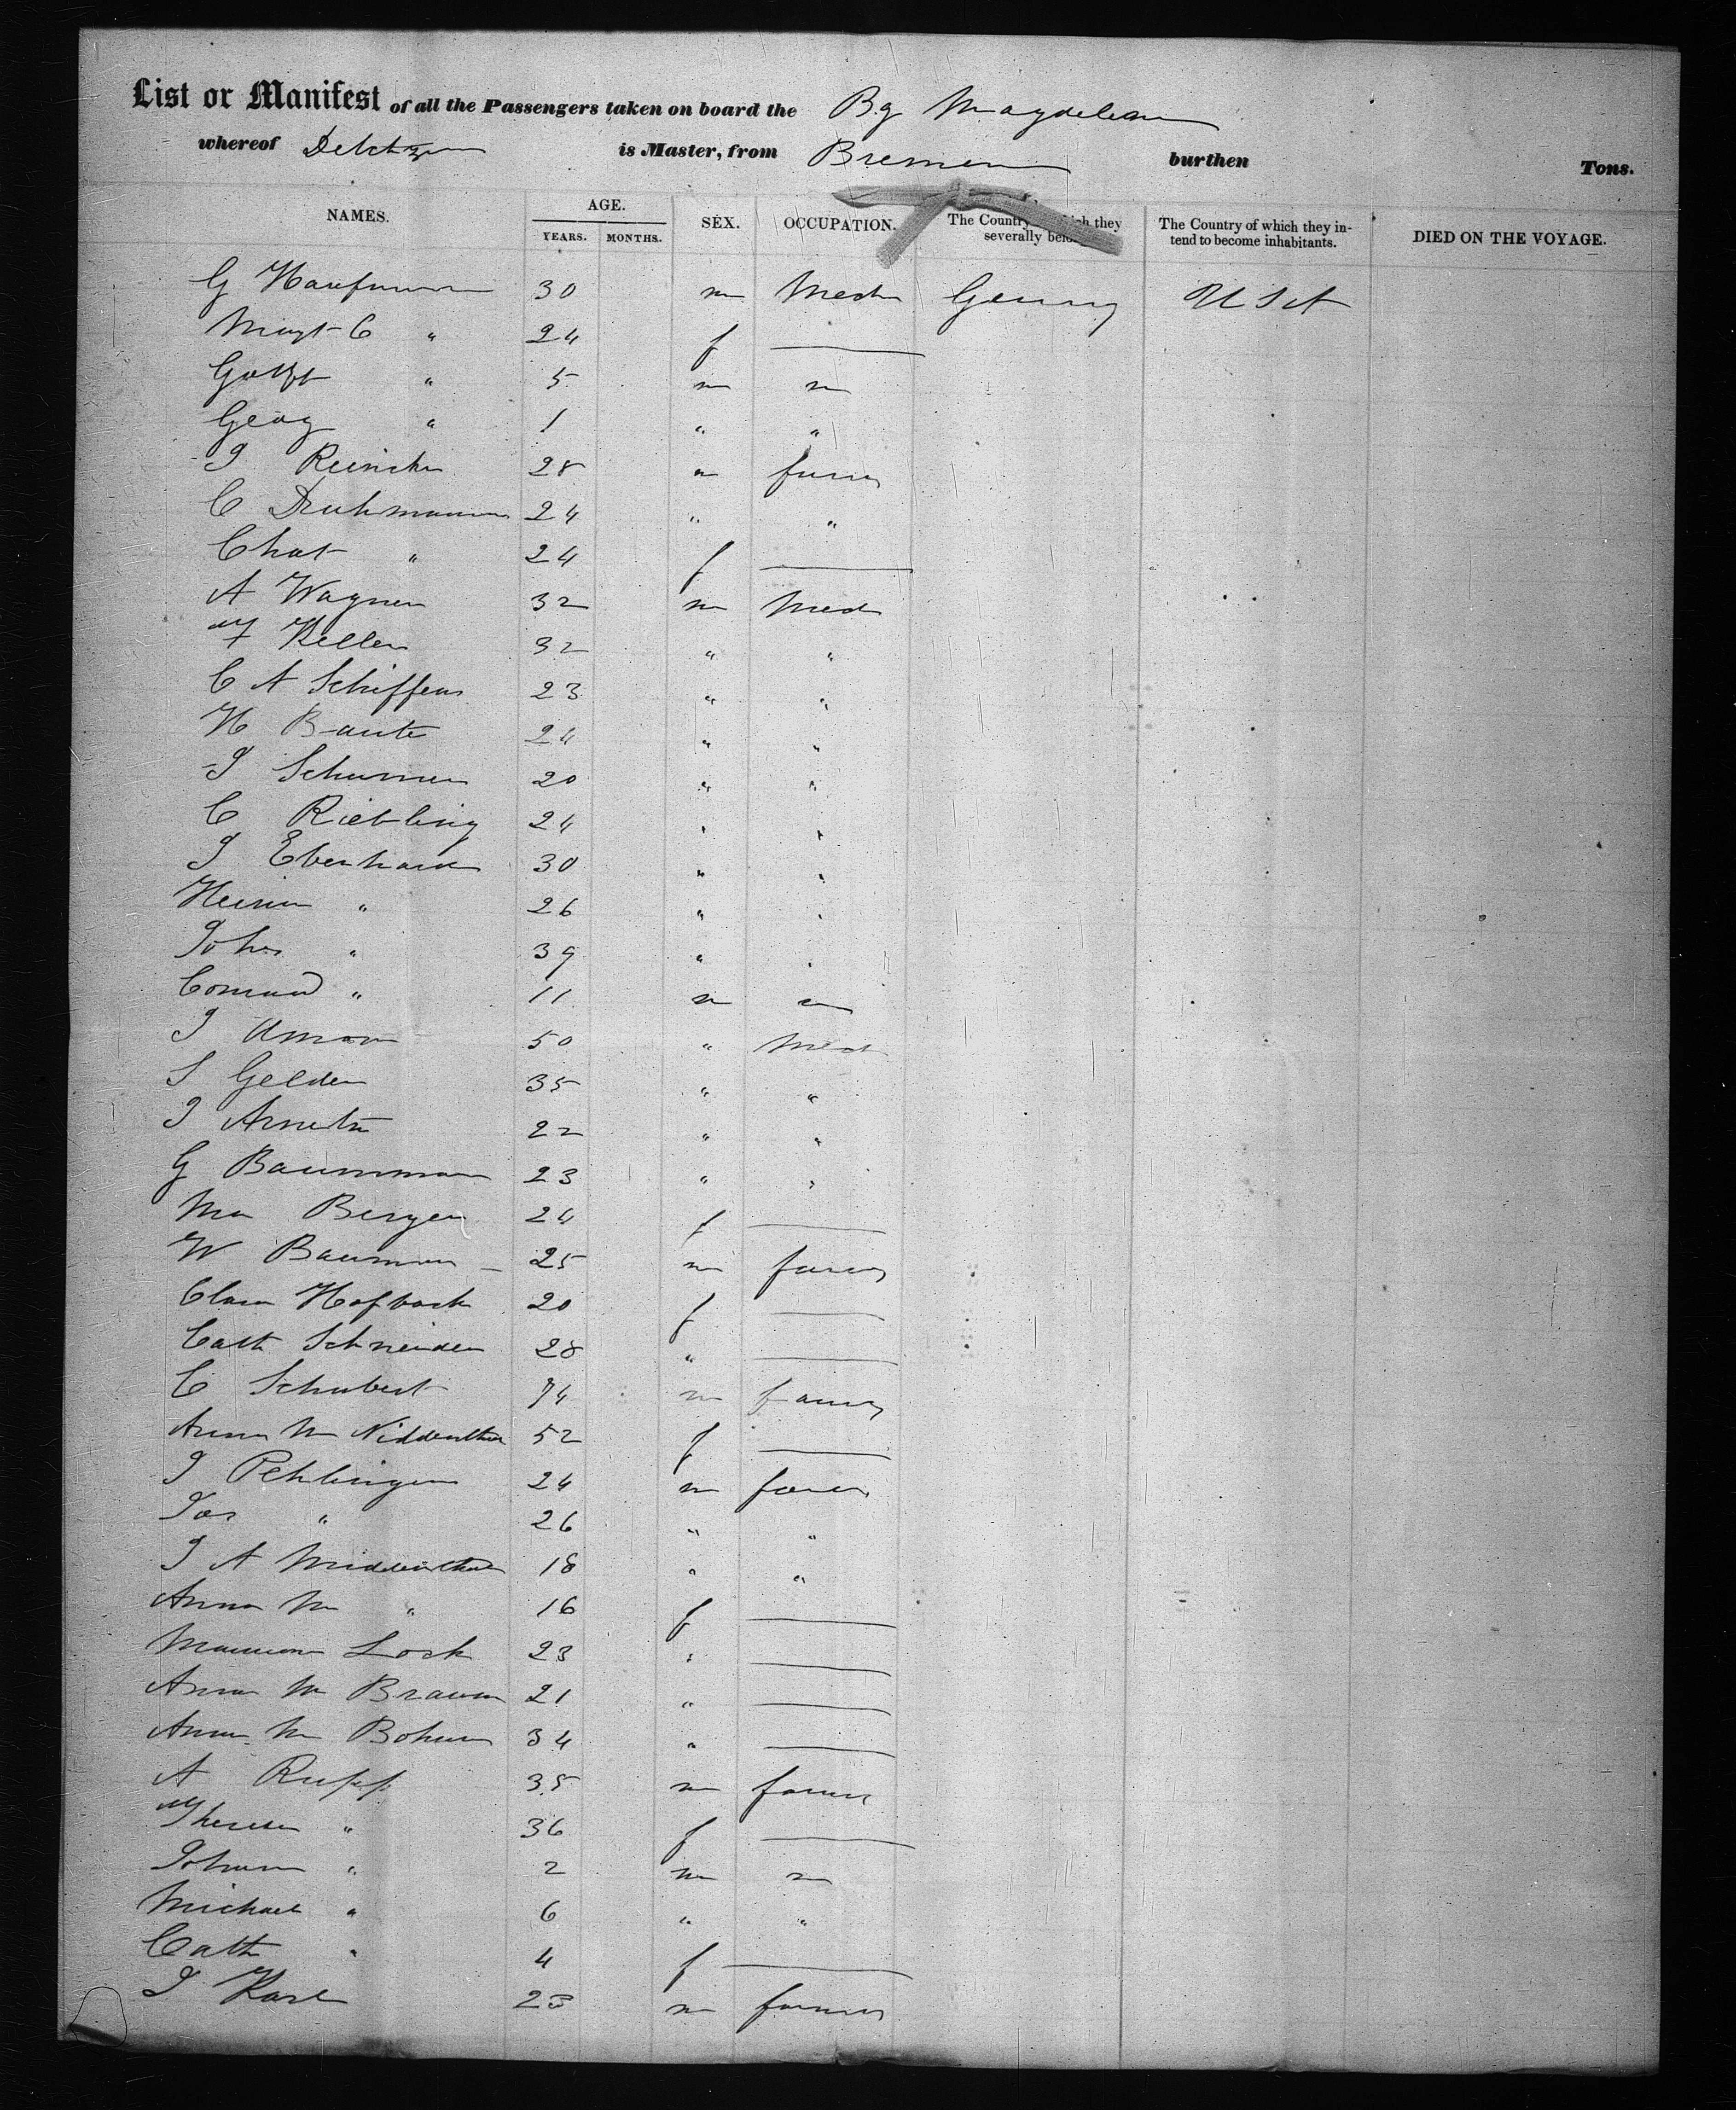 List or Manifest of all the Passengers taken on board the Bg Magdelena
whereof is Master, from Bremen burthen Tons.
NAMES. AGE. YEARS. MONTHS. SEX. OCCUPATION. The Country which they severally The Country of which they intend to become inhabitants. DIED ON THE VOYAGE.
G 30 m Mech Germy U S A
Magt C " 24 f
5 m
Georg " 1 " "
J 28 m farmer
C 24 " "
Chat " 24 f
A Wagner 32 m Mech
F Keller 32 " "
C A Schiffens 23 " "
H Baute 24 " "
J 20 " "
C Riebling 24 " "
J Eberhard 30 " "
" 26 " "
Johs " 39 " "
Conrad " 11 m
J 50 " Mech
S Gelden 35 " "
J 22 " "
G Baumman 23 " "
Ma Bergen 24 f
W Bauman 25 m farmer
Clara Hofbach 20 f
Cath Schneider 28 "
C Schubert 74 m farmer
Anna M Niddenthal 52 f
J Pehlinger 24 m farmer
Jos " 26 " "
J A 18 " "
Anna M " 16 f
Lock 23 "
Anna M Braun 21 "
Anna M 34 "
A Rupp 35 m farmer
Theresa " 36 f
Johann " 2 m
Michael " 6 " "
Cath " 4 f
J Karl 23 m farmer